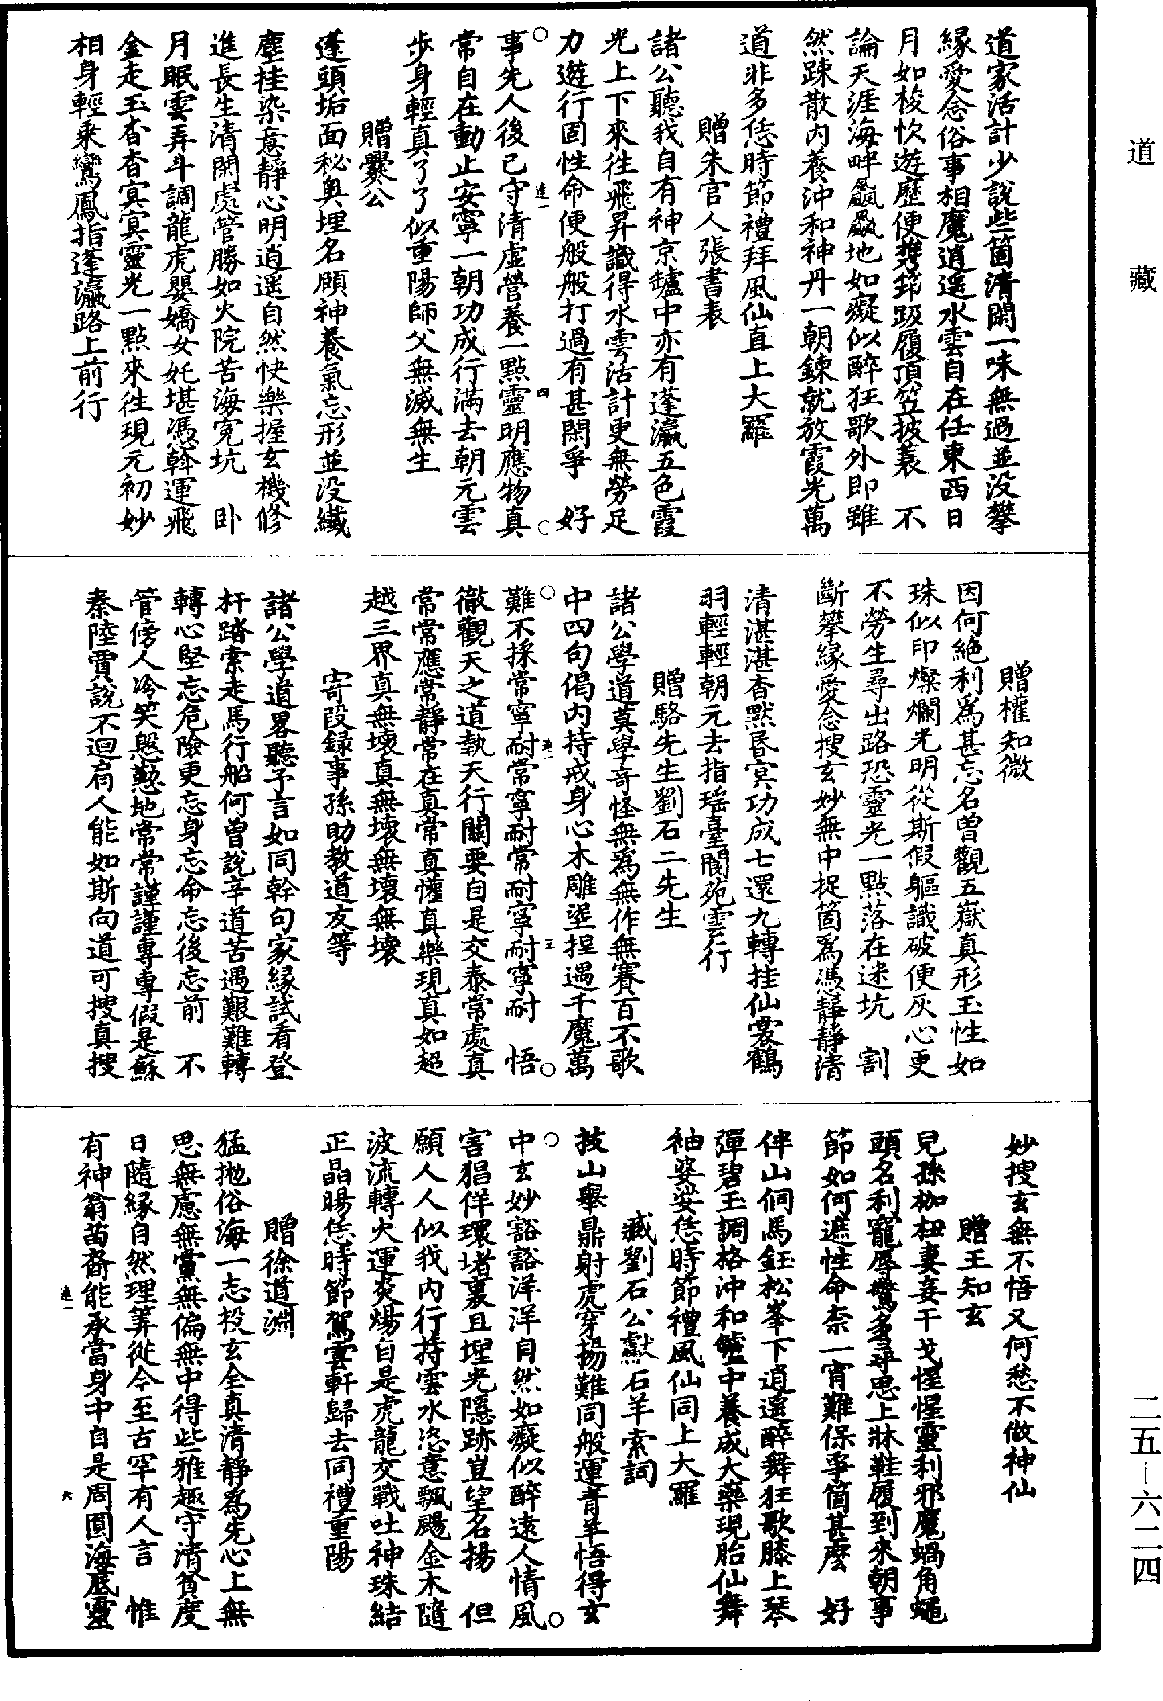 道藏
二五—六二四
道家活計少說些箇清閑一味無過並没攀
緣愛念俗事相魔逍遥水雲自在任東西日
月如梭忺遊歷便攜筇趿履頂笠披蓑　不
論天涯海畔飄飄地如癡似醉狂歌外即雖
然踈散内養沖和神丹一朝鍊就放霞光萬
道非多恁時節禮拜風仙直上大羅
贈朱官人張書表
諸公聽我自有神京鑪中亦有蓬瀛五色霞
光上下來往飛昇識得水雲活計更無勞足
力遊行固性命便般般打過有甚閑爭　好
事先人後已守清虛營養一點靈明應物真
常自在動止安寧一朝功成行滿去朝元雲
步身輕真了了似重陽師父無滅無生
贈爨公
蓬頭垢面秘奥埋名頤神養氣忘形並没纎
塵挂染意靜心明逍遥自然快樂握玄機修
進長生清閑處管勝如火院苦海冤坑　卧
月眠雲弄斗調龍虎嬰嬌女奼堪憑斡運飛
金走玉杳杳冥冥靈光一點來往現元初妙
相身輕乘鸞鳳指蓬瀛路上前行
贈權知微
因何絶利為甚忘名曽觀五嶽真形玉性如
珠似印燦爛光明從斯假軀識破便灰心更
不勞生尋出路恐靈光一點落在迷坑　割
斷攀緣愛念搜玄妙無中捉箇為憑靜靜清
清湛湛杳默昬冥功成七還九轉挂仙裳鶴
羽輕輕朝元去指瑶臺閬苑雲行
贈駱先生劉石二先生
諸公學道莫學奇怪無為無作無賽百不歌
中四句偈内持戒身心木雕塑捏遇千魔萬
難不採常寧耐常寧耐常耐寧耐寧耐　悟
徹觀天之道執天行關要自是交泰常處真
常常應常靜常在真常真懽真樂現真如超
越三界真無壞真無壞無壞無壞
寄段録事孫助教道友等
諸公學道畧聽予言如同幹句家緣試看登
杆踏索走馬行船何曽説辛道苦遇艱難轉
轉心堅忘危險更忘身忘命忘後忘前　不
管傍人冷笑慇懃地常常謹謹專專假是蘇
秦陸賈説不迴肩人能如斯向道可搜真搜
妙搜玄無不悟又何愁不做神仙
贈王知玄
兒孫枷杻妻妾干戈惺惺靈利邪魔蝸角蠅
頭名利寵辱驚多尋思上牀鞋履到來朝事
節如何遮性命柰一宵難保爭箇甚麼　好
伴山侗馬鈺松峯下逍遥醉舞狂歌膝上琴
彈碧玉調格沖和鑪中養成大藥現胎仙舞
袖婆娑恁時節禮風仙同上大羅
臧劉石公獻石羊索詞
拔山舉鼎射虎穿楊難同般運青羊悟得玄
中玄妙豁豁洋洋自然如癡似醉遠人情風
害猖佯環堵裏且埋光隱跡豈望名揚　但
願人人似我内行持雲水恣意飄颺金木隨
波流轉火運炎煬自是虎龍交戰吐神珠結
正晶暘恁時節駕雲軒歸去同禮重陽
贈徐道淵
猛抛俗海一志投玄全真清靜為先心上無
思無慮無黨無偏無中得些雅趣守清貧度
日隨緣自然理筭從今至古罕有人言　惟
有神翁苗裔能承當身中自是周圓海底靈